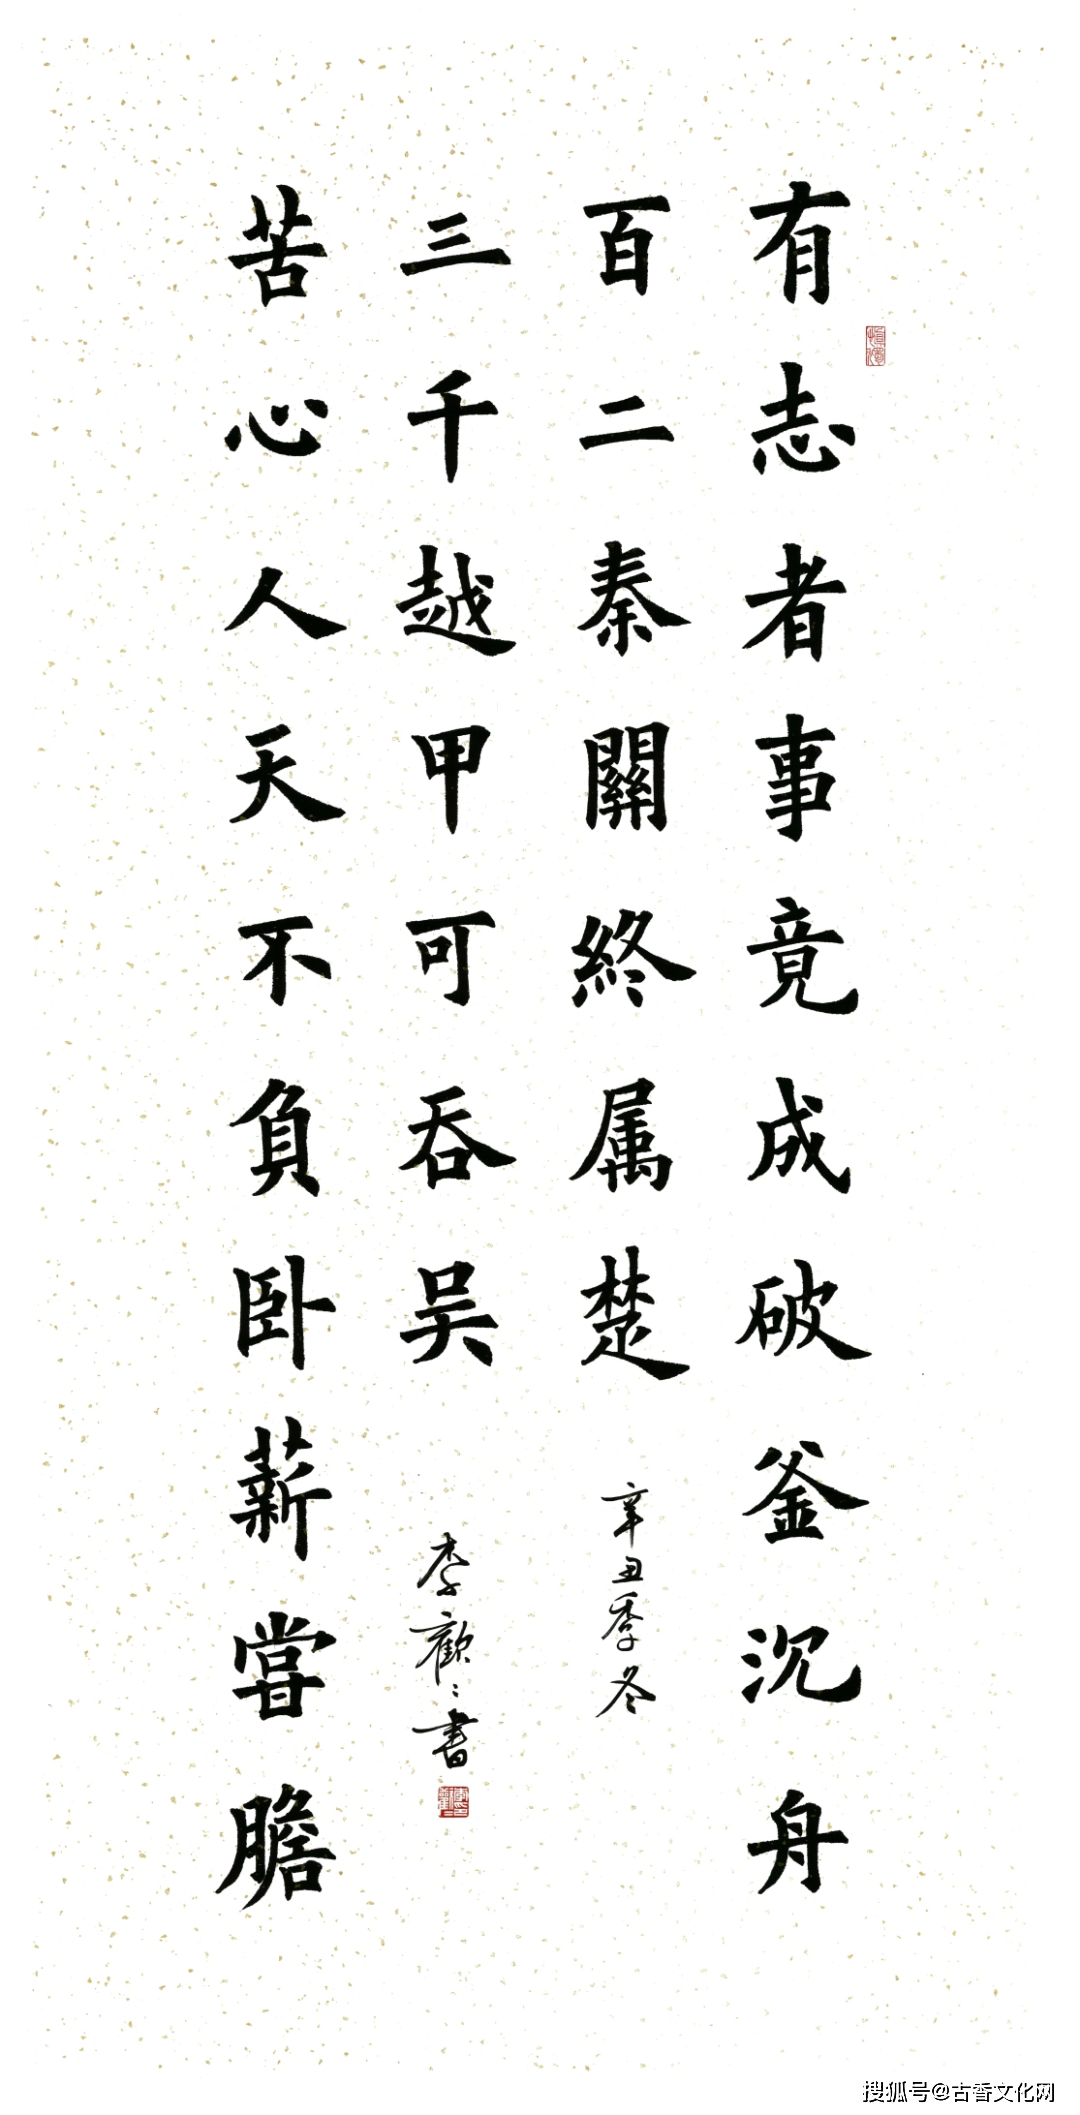 有志者事竟成破釜沉舟
百二秦關終属楚
辛丑季冬
苦心人天不負卧薪嘗膽
三千越甲可吞吴
李歡〻書
慎獨
搜狐号@古香文化网